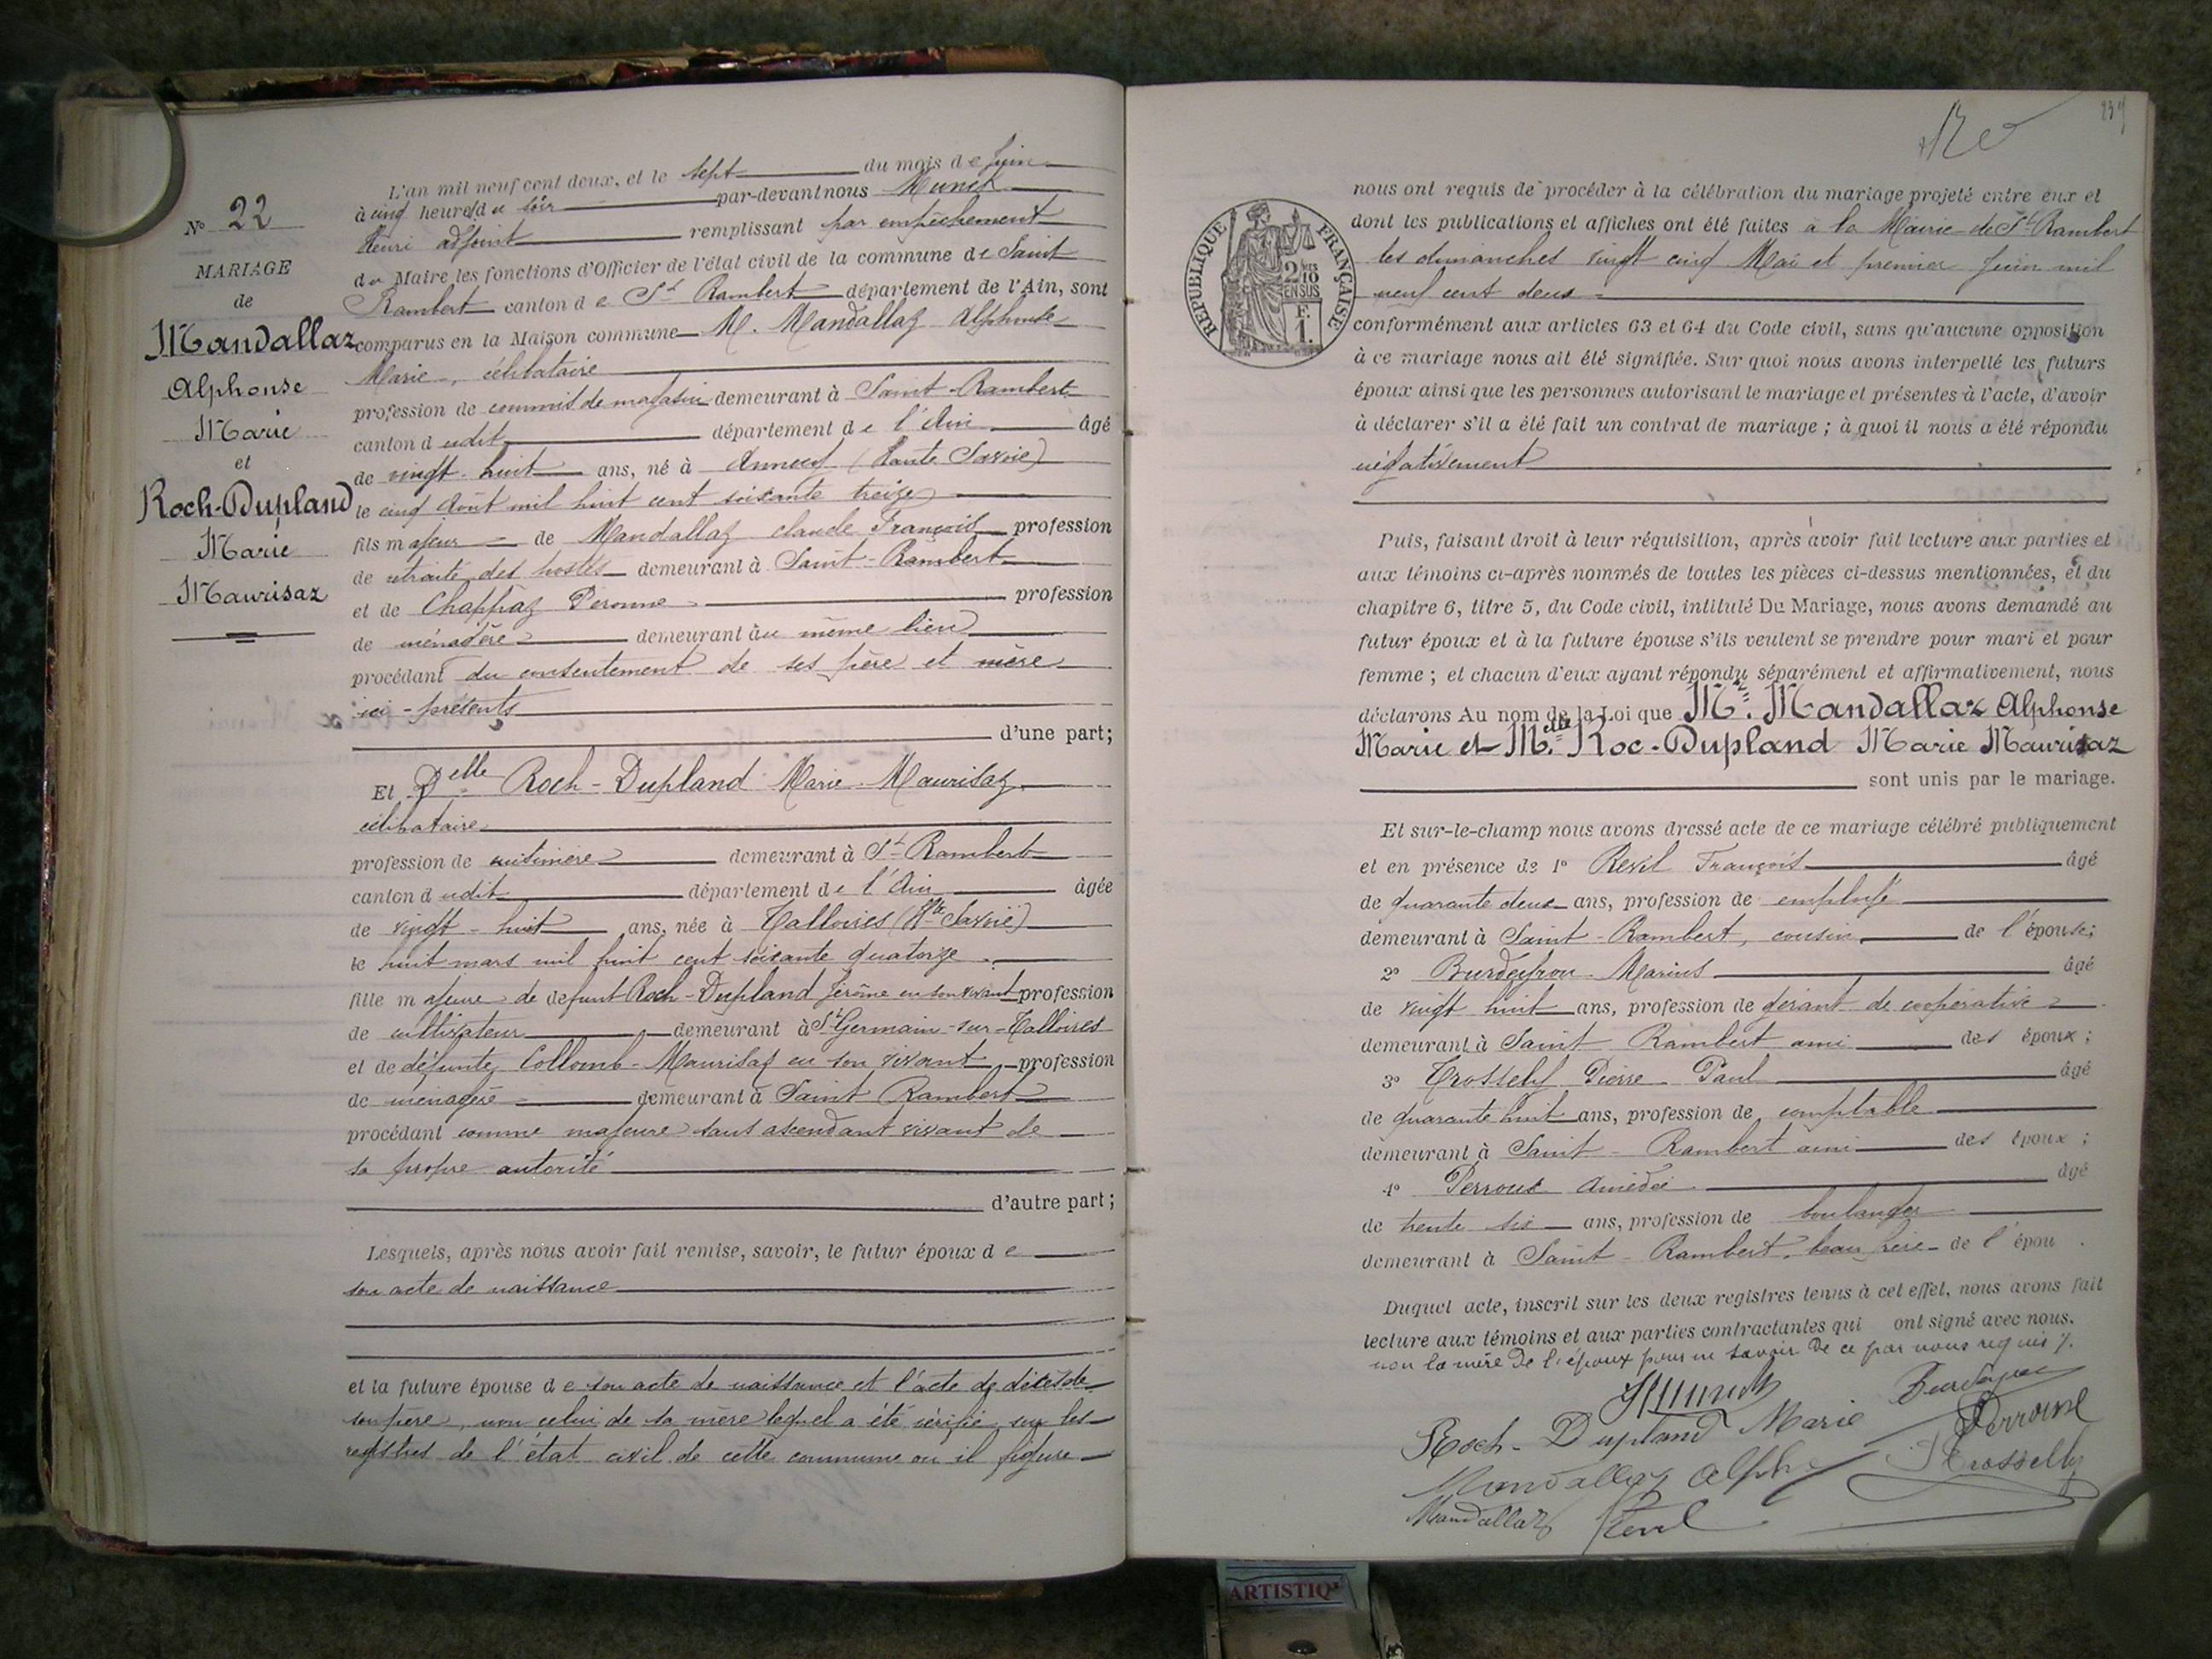 N° 22
MARIAGE
de
Mandallaz
Alphonse
Marie
et
Roch-Dupland
Marie
Maurisaz
L'an mil neuf cent deux, et le sept du mois de juin
à cinq heures du soir par-devant nous Munet
Henri adjoint remplissant par empêchement
du Maire les fonctions d'Officier de l'état civil de la commune de Saint
Rambert canton de St Rambert département de l'Ain, sont
comparus en la Maison commune M. Mandallaz Alphonse
Marie, célibataire
profession de commis de magasin demeurant à Saint-Rambert
canton dudit département de l'Ain âgé
de vingt-huit ans, né à Annecy (Haute Savoie)
le cinq août mil huit cent soixante treize
fils majeur de Mandallaz claude François profession
de retraité des postes demeurant à Saint-Rambert
et de Chappaz Péronne profession
de ménagère demeurant au même lieu
procédant du consentement de ses père et mère
ici-présents
d'une part;
Et Delle Roch-Dupland Marie Maurisaz
célibataire
profession de cuisinière demeurant à St Rambert
canton dudit département de l'Ain âgée
de vingt-huit ans, née à Talloires (Hte Savoie)
le huit mars mil huit cent soixante quatorze
fille majeure de defunt Roch-Dupland Jérôme en son vivant profession
de cultivateur demeurant à St Germain-sur-Talloires
et de défunte Collomb-Maurisaz en son vivant profession
de ménagère demeurant à Saint Rambert
procédant comme majeure sans ascendant vivant de
sa propre autorité
d'autre part;
Lesquels, après nous avoir fait remise, savoir, le futur époux de
son acte de naissance
et la future épouse de son acte de naissance et l'acte de décès de
son père, non celui de sa mère lequel a été vérifié sur les
registres de l'état civil de cette commune ou il figure
RÉPUBLIQUE FRANÇAISE
2/10
EN SUS
F.
1.
nous ont requis de procéder à la célébration du mariage projeté entre eux et
dont les publications et affiches ont été faites à la Mairie de St Rambert
les dimanches vingt cinq Mai et premier juin mil
neuf cent deux
conformément aux articles 63 et 64 du Code civil, sans qu'aucune opposition
à ce mariage nous ait été signifiée. Sur quoi nous avons interpellé les futurs
époux ainsi que les personnes autorisant le mariage et présentes à l'acte, d'avoir
à déclarer s'il a été fait un contrat de mariage; à quoi il nous a été répondu
négativement
Puis, faisant droit à leur réquisition, après avoir fait lecture aux parties et
aux témoins ci-après nommés de toutes les pièces ci-dessus mentionnées, et du
chapitre 6, titre 5, du Code civil, intitulé Du Mariage, nous avons demandé au
futur époux et à la future épouse s'ils veulent se prendre pour mari et pour
femme; et chacun d'eux ayant répondu séparément et affirmativement, nous
déclarons Au nom de la Loi que Mr. Mandallaz Alphonse
Marie et Melle Roc-Dupland Marie Maurisaz
sont unis par le mariage.
Et sur-le-champ nous avons dressé acte de ce mariage célébré publiquement
et en présence de 1° Revil François âgé
de quarante deux ans, profession de employé
demeurant à Saint-Rambert, cousin de l'épouse;
2° Burdeyron Marius âgé
de vingt huit ans, profession de gérant de coopérative
demeurant à Saint Rambert ami des époux;
3° Trosselly Pierre Paul âgé
de quarante huit ans, profession de comptable
demeurant à Saint-Rambert ami des époux;
4° Perroux Amédée âgé
de trente six ans, profession de boulanger
demeurant à Saint-Rambert, beau frère de l'épou
Duquel acte, inscrit sur les deux registres tenus à cet effet, nous avons fait
lecture aux témoins et aux parties contractantes qui ont signé avec nous.
non la mère de l'époux pour ne savoir de ce par nous requis
Roch-Dupland Marie
Perroux
Mandallaz Alph
Trosselly
Mandallaz Revil
ARTISTIQ